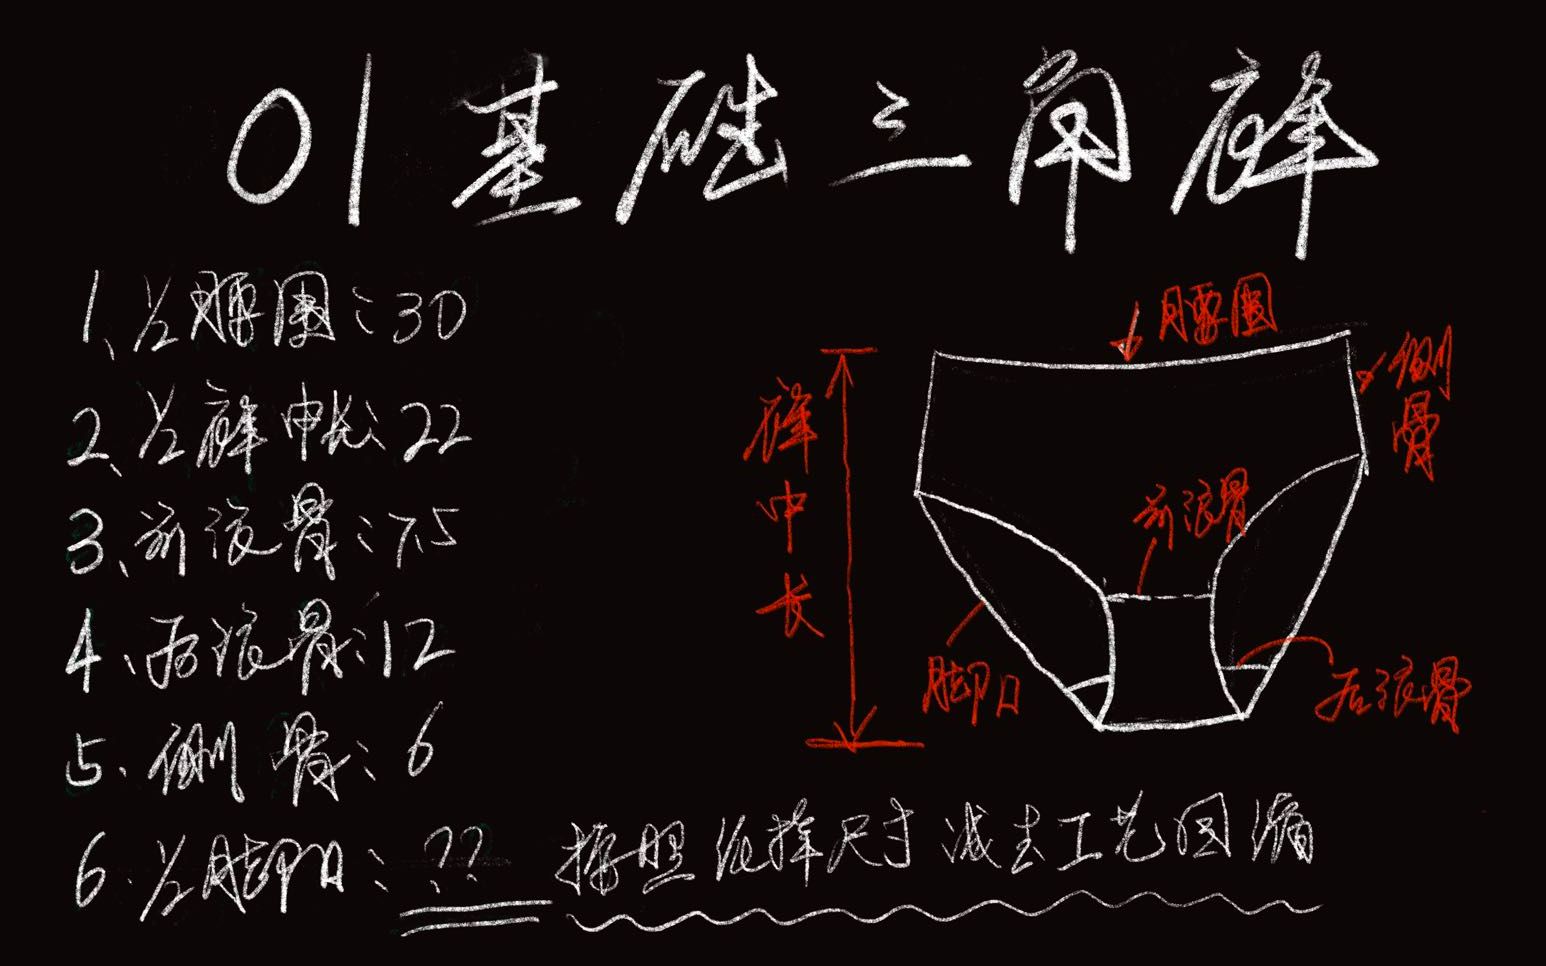 01基础三角裤
1、1/2腰围：30
2、1/2裤中长：22
3、前浪骨：7.5
4、后浪骨：12
5、侧骨：6
6、1/2脚口：？？ 按照纸样尺寸减去工艺回缩
腰围
侧骨
裤中长
前浪骨
脚口
后浪骨